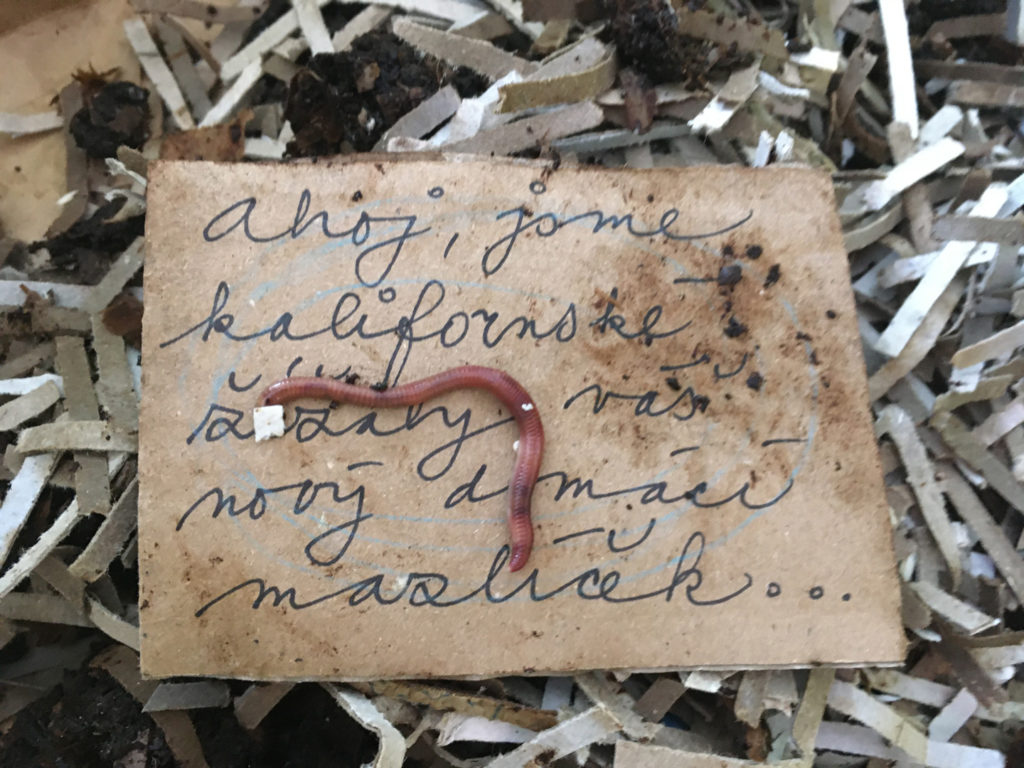 ahoj, jsme
kalifornské
žížaly váš
nový domácí
mazlíček...